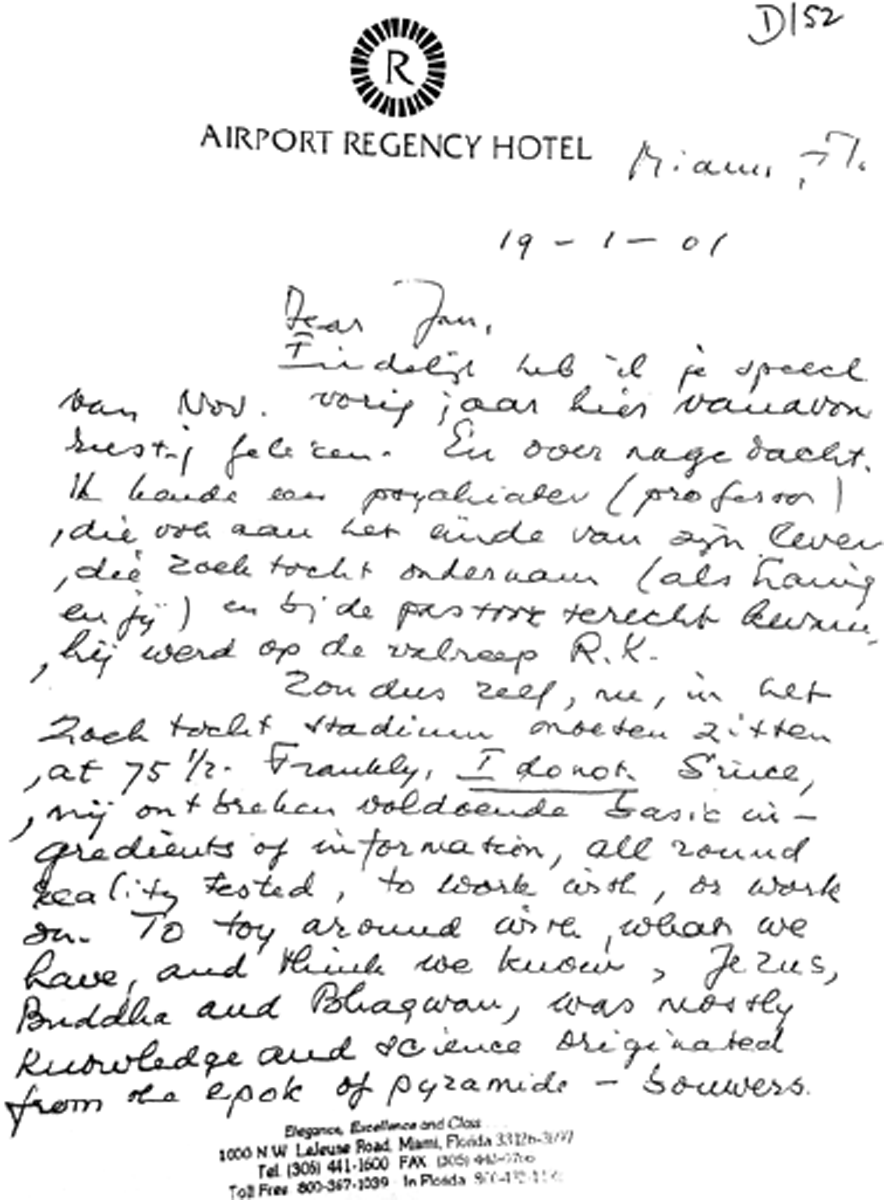 D/52
R
AIRPORT REGENCY HOTEL
Miami, Fl.
19 - 1 - 01
Dear Jan,
Eindelijk heb ik je speech
van Nov. vorig jaar hier vanavond
rustig gelezen. En over nagedacht.
Ik kende een psychiater (professor)
, die ook aan het einde van zijn leven
, die zoektocht ondernam (als
en jij) en bij de pastoor terecht kwam,
, hij werd op de valreep R.K.
Zou dus zelf, nu, in het
Zoektocht stadium moeten zitten
, at 75 1/2. Frankly, I do not. Since,
, mij ontbreken voldoende basic in-
gredients of information, all round
reality tested, to work with, or work
on. To toy around with, what we
have, and think we know, Jezus,
Buddha and Bhagwan, was mostly
knowledge and science originated
from the epok of pyramide - bouwers.
Elegance, Excellence and Class
1000 N.W. LeJeune Road, Miami, Florida 33126
Tel. (305) 441-1600 FAX (305)
Toll Free 800-367-1039 In Florida